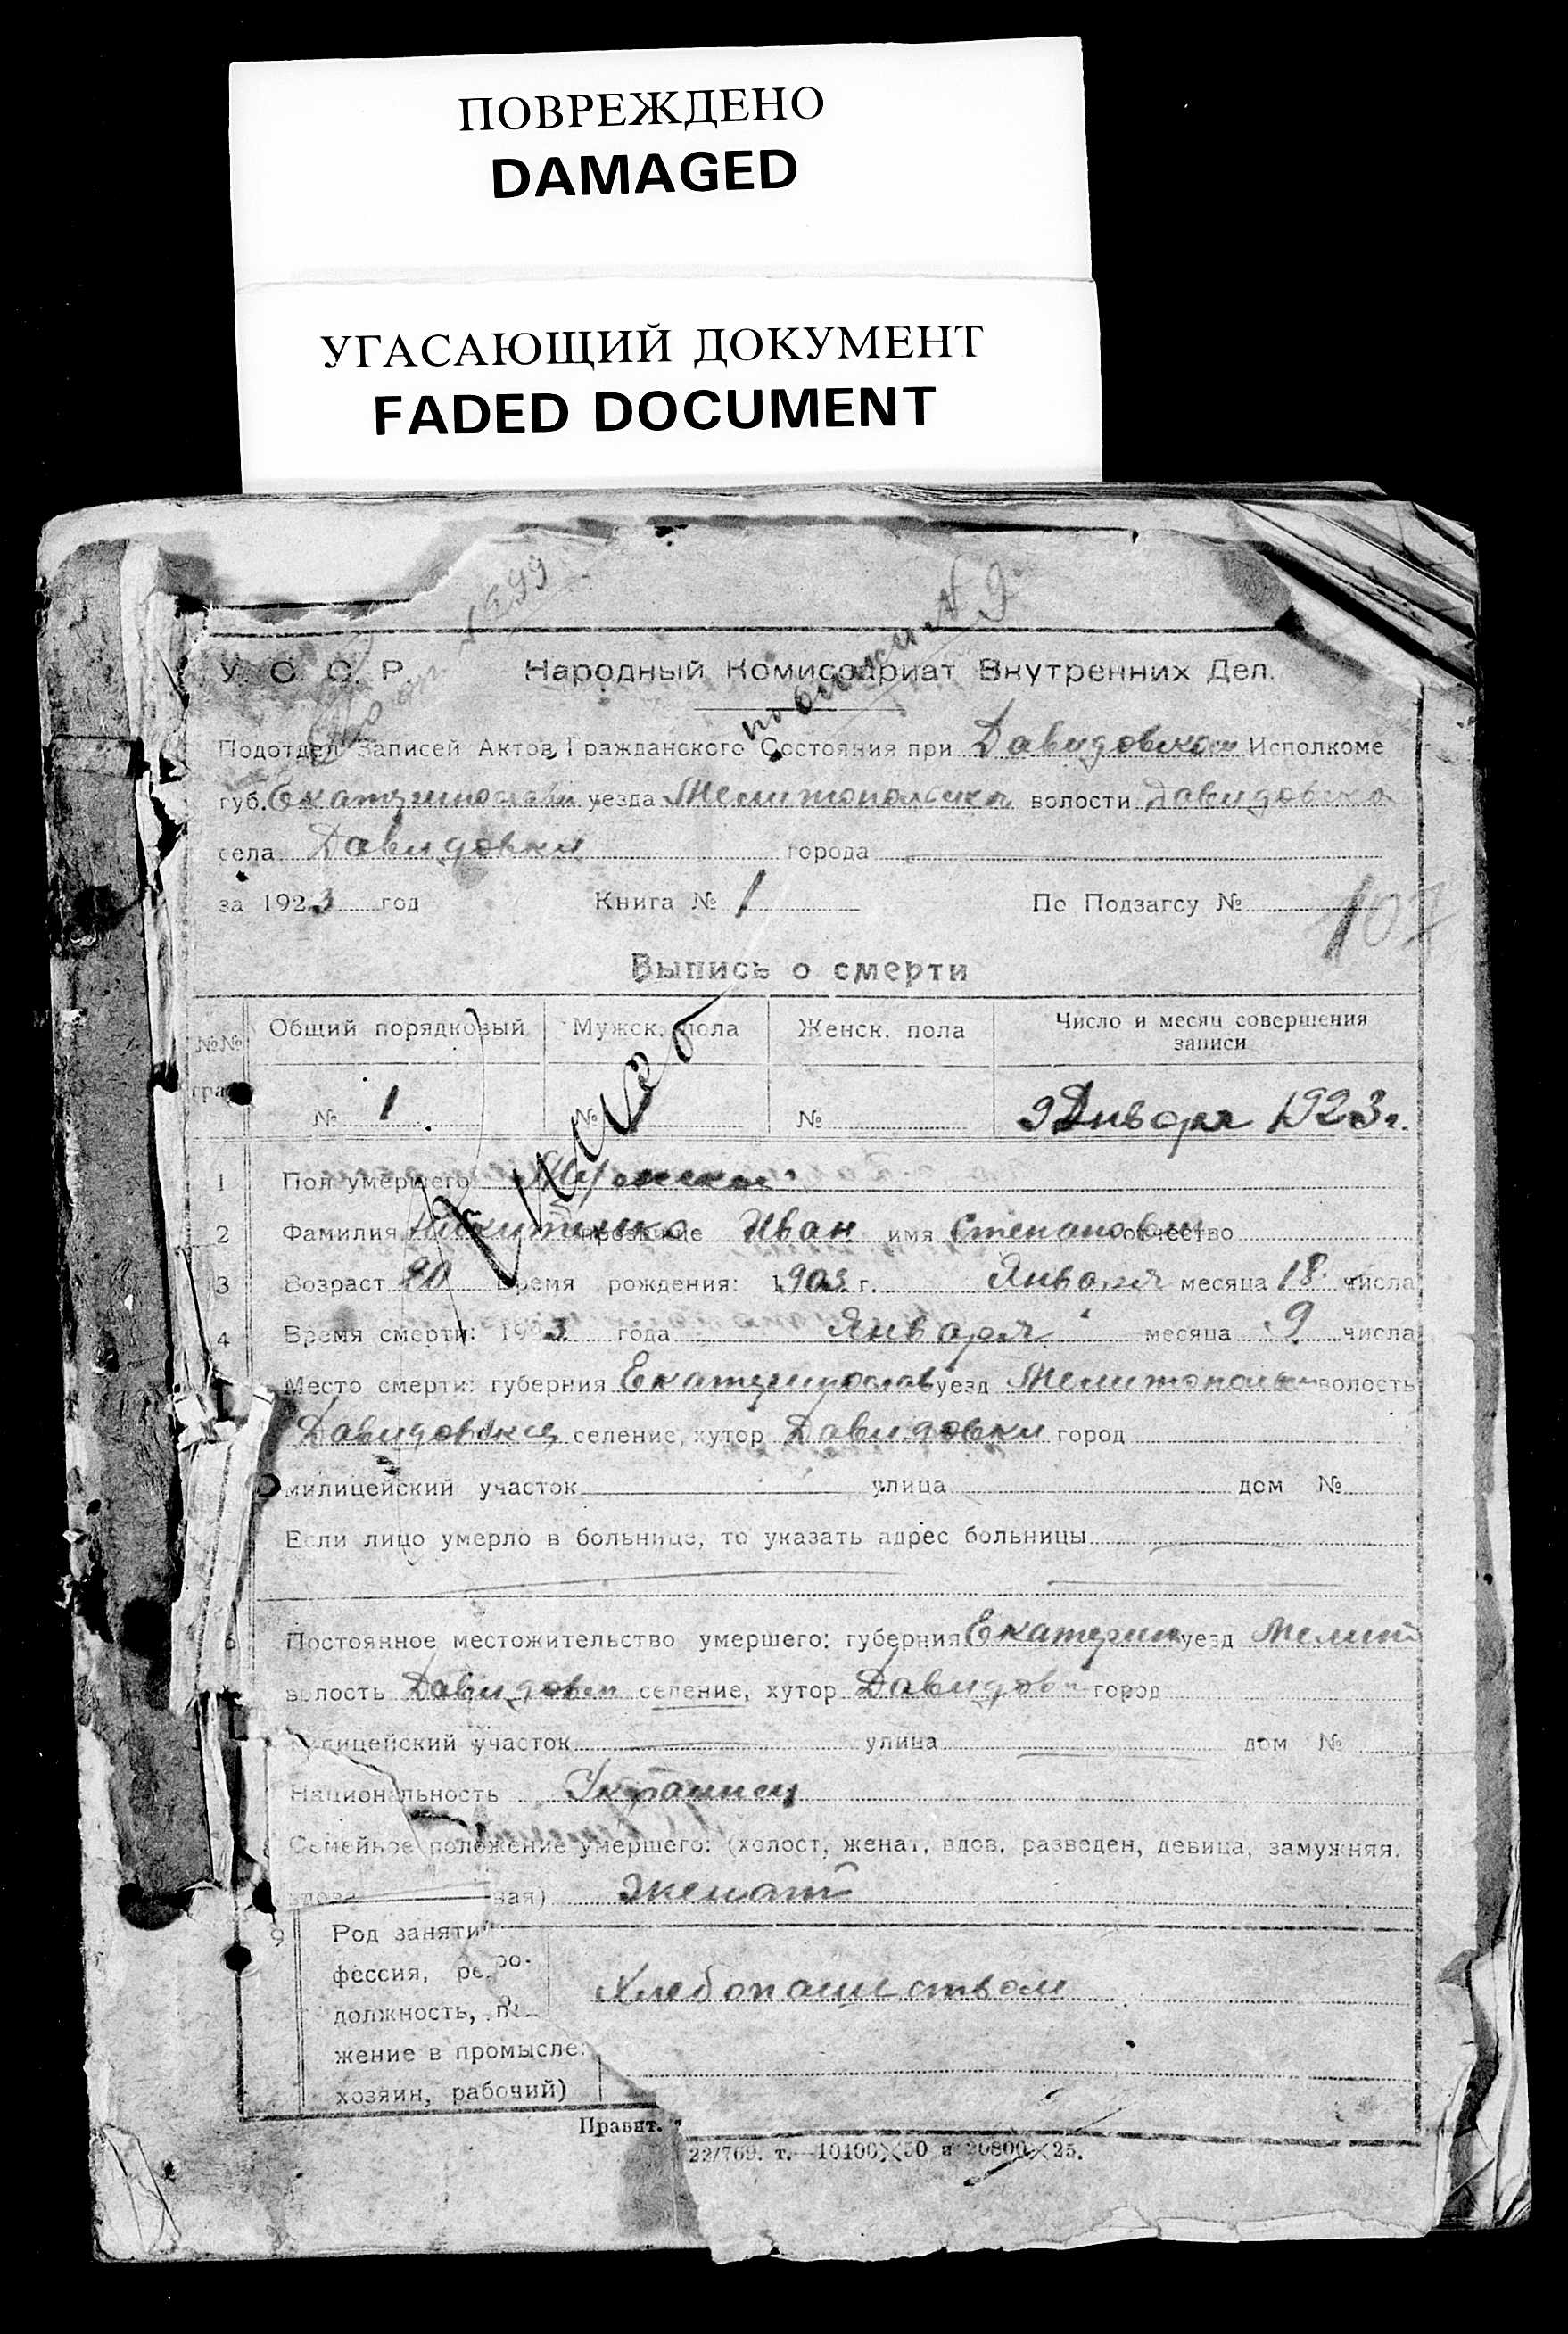 ПОВРЕЖДЕНО
DAMAGED
УГАСАЮЩИЙ ДОКУМЕНТ
FADED DOCUMENT
У. С. С. Р. Народный Комиссариат Внутренних Дел.
Подотдел Записей Актов Гражданского Состояния при Давидовском Исполкоме
губ. Екатеринослав уезда Мелитопольска волости Давидовска
села Давидовки города
за 1923 год Книга № 1 По Подзагсу № 107
Выпись о смерти
№№ Общий порядковый Мужск. пола Женск. пола Число и месяц совершения
записи
гра
№ 1 № № 9 Января 1923 г.
1 Пол умершего Мужской
2 Фамилия Никитенко прозвание Иван имя Степанович отчество
3 Возраст 20 Время рождения: 1903 г. Января месяца 18 числа
4 Время смерти: 1923 года Января месяца 9 числа
Место смерти: губерния Екатеринослав уезд Мелитопольск волость
Давидовска селение, хутор Давидовки город
милицейский участок улица дом №
Если лицо умерло в больнице, то указать адрес больницы
6 Постоянное местожительство умершего: губерния Екатерин уезд Мелит
волость Давидовск селение, хутор Давидов город
милицейский участок улица дом №
Национальность Украинец
Семейное положение умершего: (холост, женат, вдов, разведен, девица, замужняя,
вдова ная) Женат
9 Род заняти
фессия, ре ро-
должность, п
жение в промысле:
хозяин, рабочий)
Хлебопашеством
Правит.
22/769. т.—10100×50 и 20800×25.